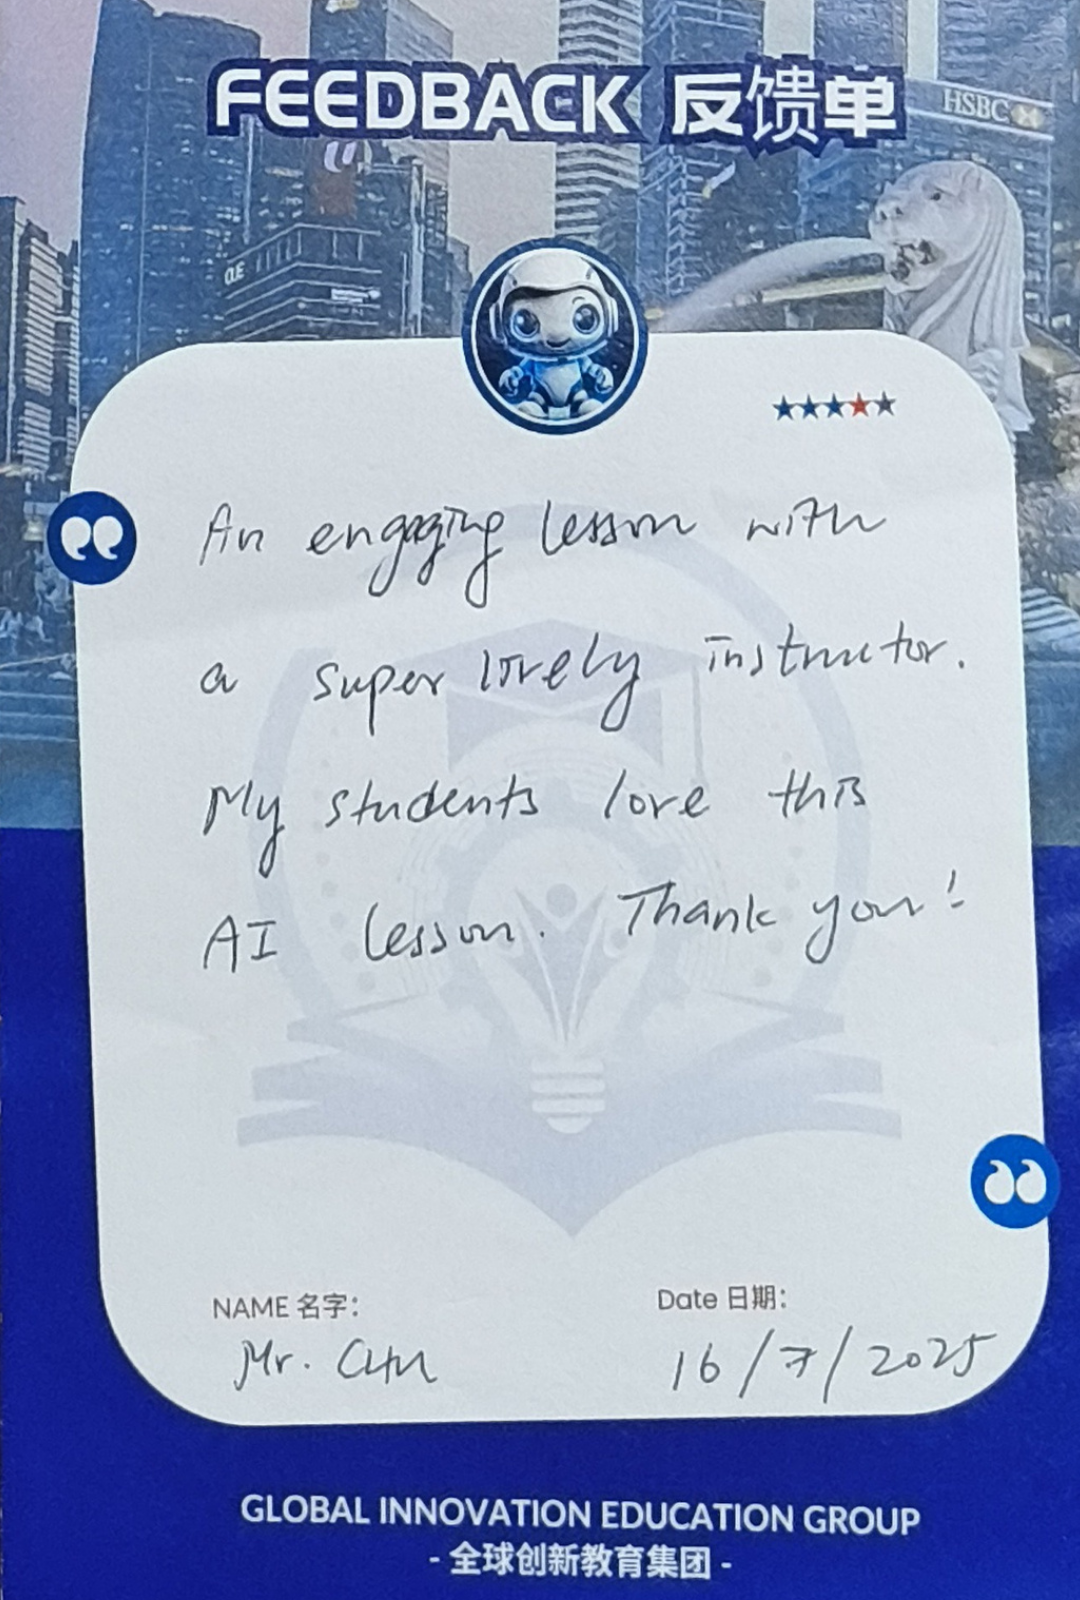 FEEDBACK 反馈单
HSBC
CUE
An engaging lesson with
a super lovely instructor.
My students love this
AI lesson. Thank you!
NAME 名字:
Date 日期:
Mr. CHU
16/7/2025
GLOBAL INNOVATION EDUCATION GROUP
- 全球创新教育集团 -